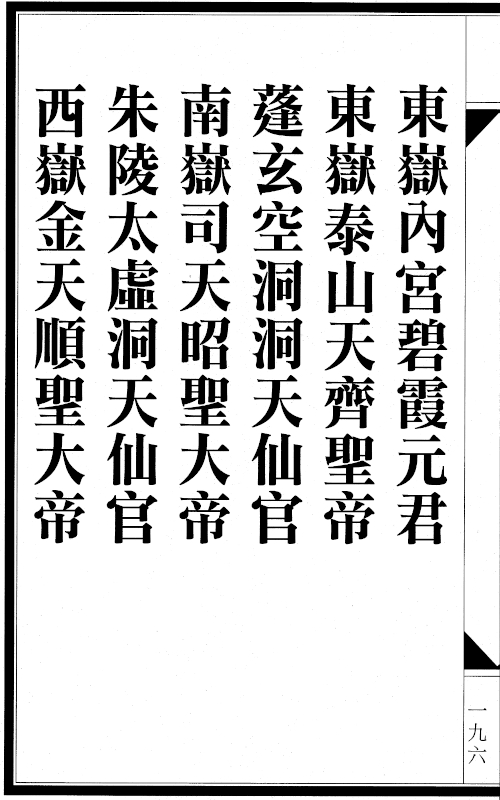 東嶽內宮碧霞元君
東嶽泰山天齊聖帝
蓬玄空洞洞天仙官
南嶽司天昭聖大帝
朱陵太虛洞天仙官
西嶽金天順聖大帝
一九六